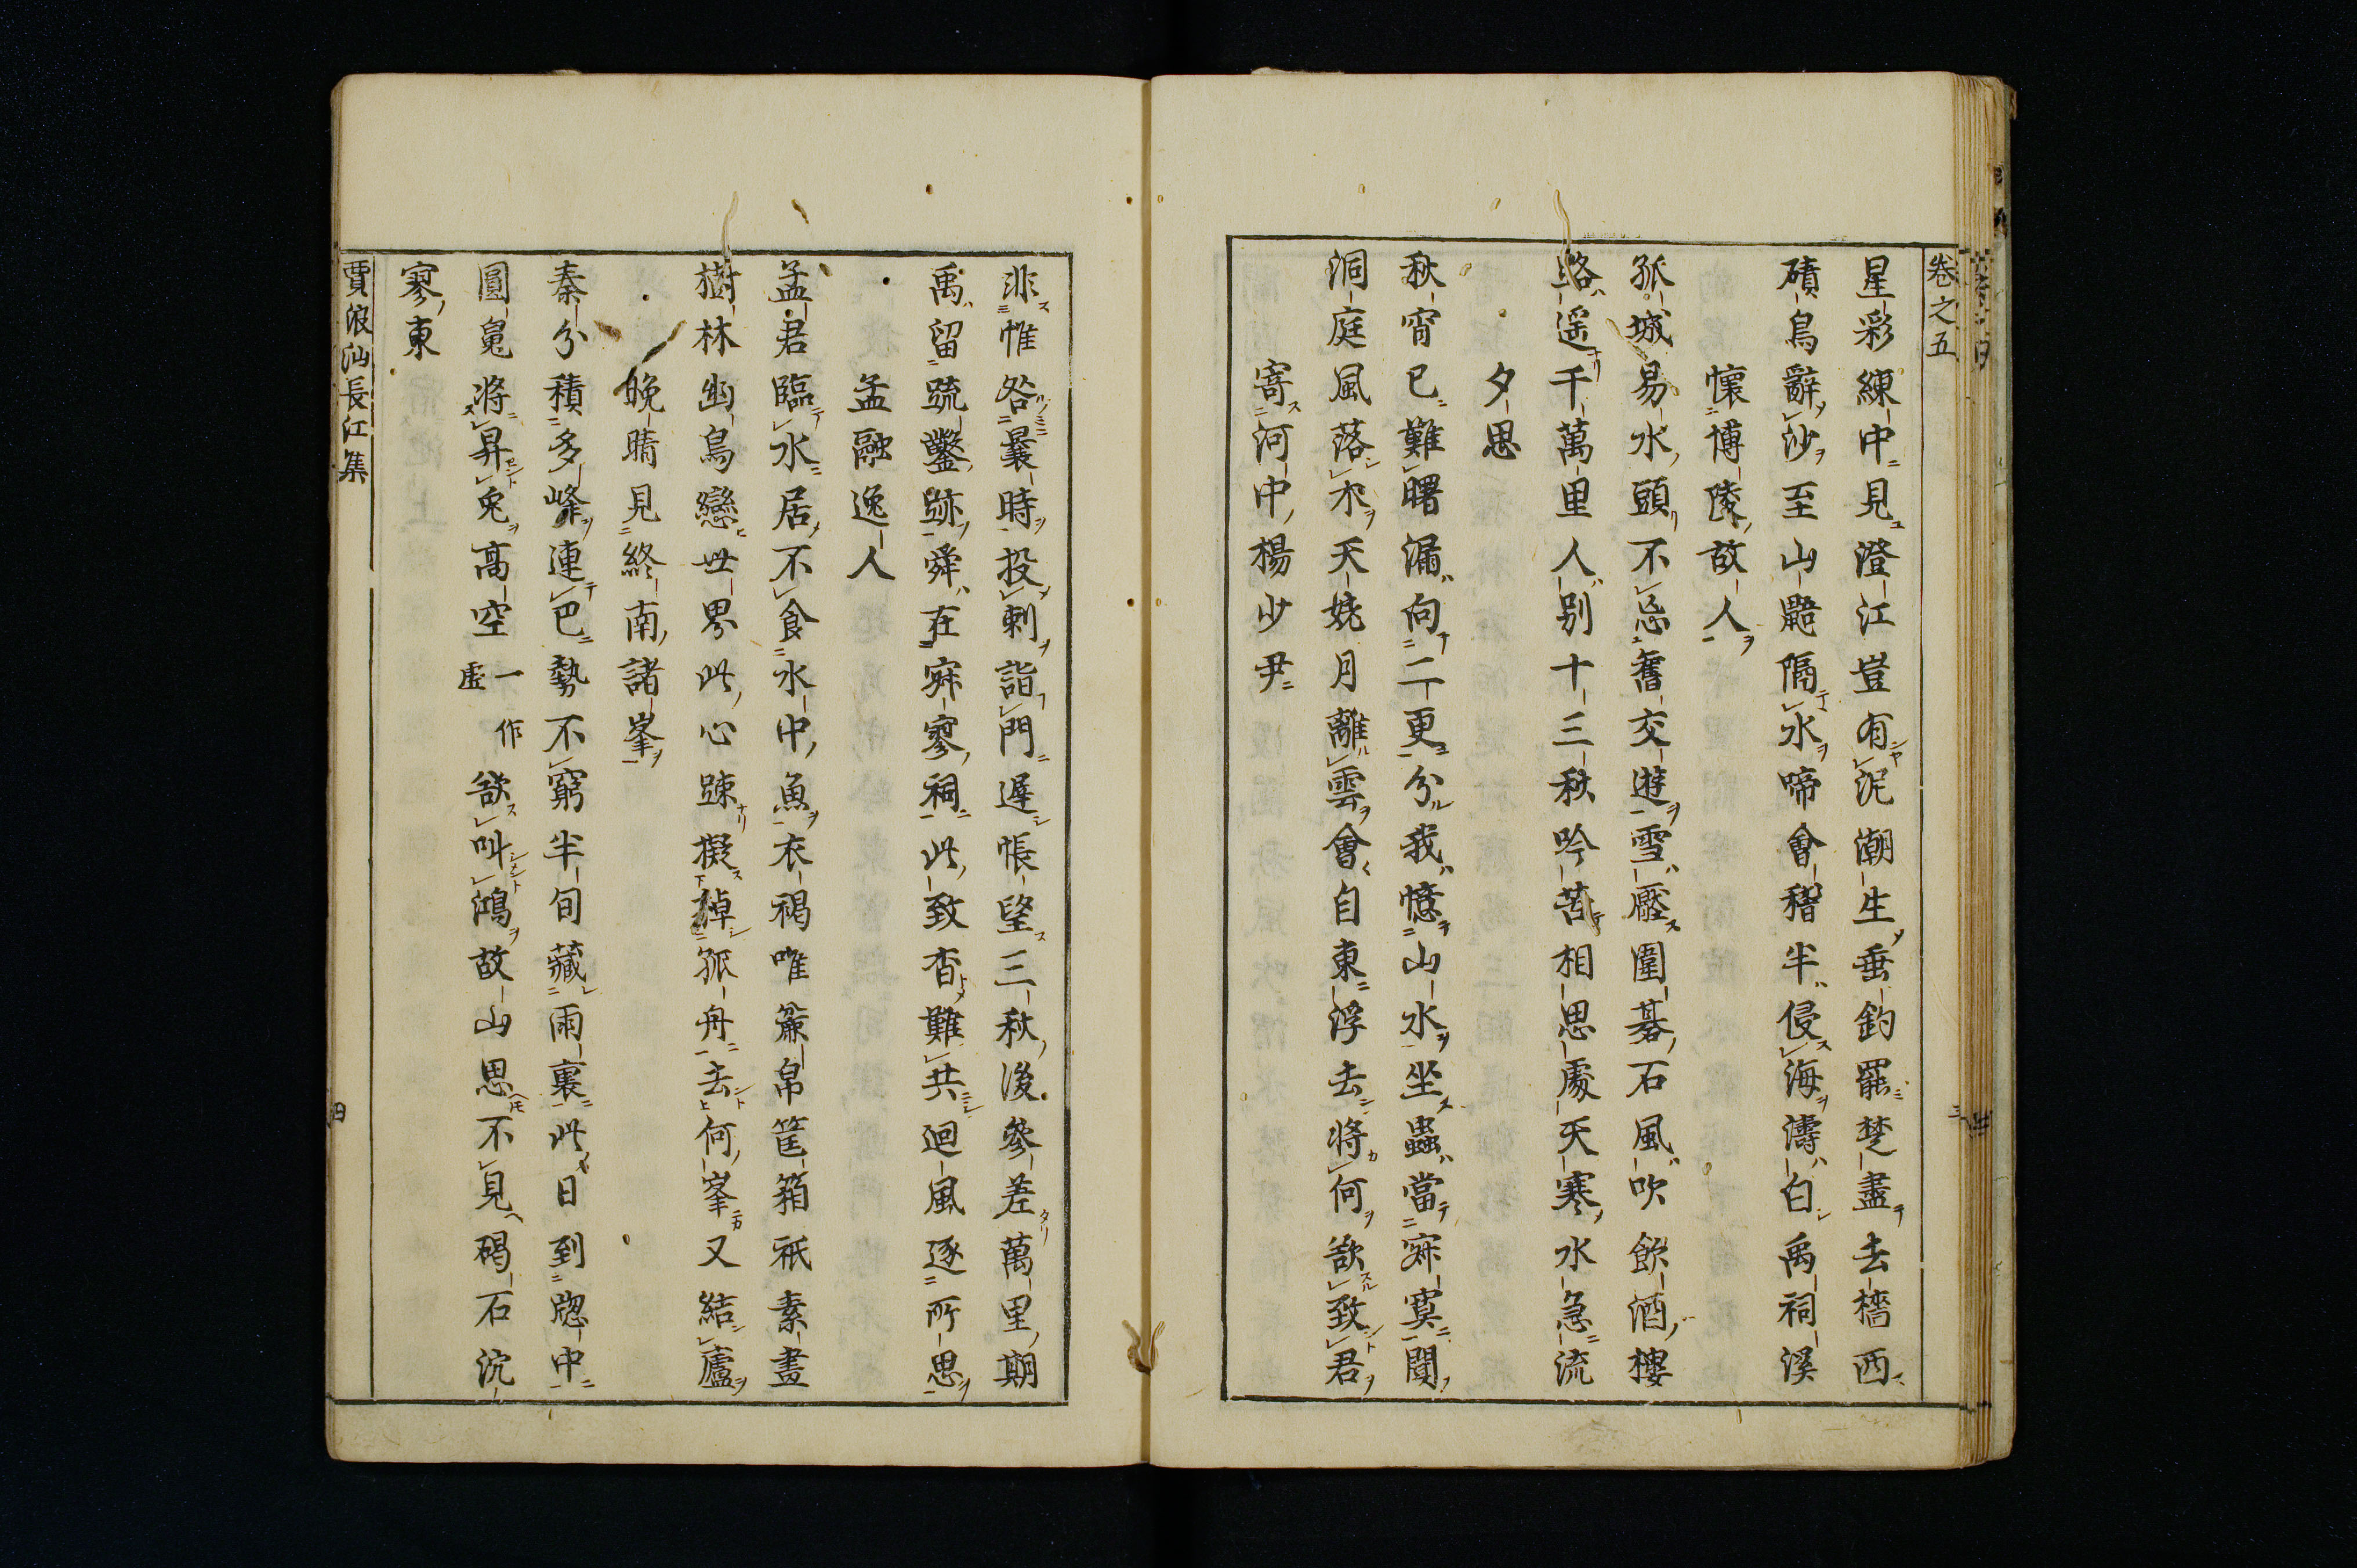 卷之五
星彩練中見澄江豈有泥潮生垂釣罷楚盡去檣西
磧鳥辭沙至山鼯隔水啼會稽半侵海濤白禹祠溪
懷博陵故人
孤城易水頭不忘舊交遊雪壓圍碁石風吹飲酒樓
路遥千萬里人别十三秋吟苦相思處天寒水急流
夕思
秋宵已難曙漏向二更分我憶山水坐蟲當寂寞聞
洞庭風落木天姥月離雲會自東浮去將何欲致君
寄河中楊少尹
非惟咎曩時投刺詣門遲悵望三秋後參差萬里期
禹留䟽鑿跡舜在寂寥祠此致杳難共迴風逐所思
孟融逸人
孟君臨水居不食水中魚衣褐唯麤帛筐箱祇素書
樹林幽鳥戀世界此心踈擬棹孤舟去何峯又結廬
晚晴見終南諸峯
秦分積多峰連巴勢不窮半旬藏雨裏此日到牕中
圓魄將昇兔高空一作虛欲叫鴻故山思不見碣石泬
寥東
賈浪仙長江集
四